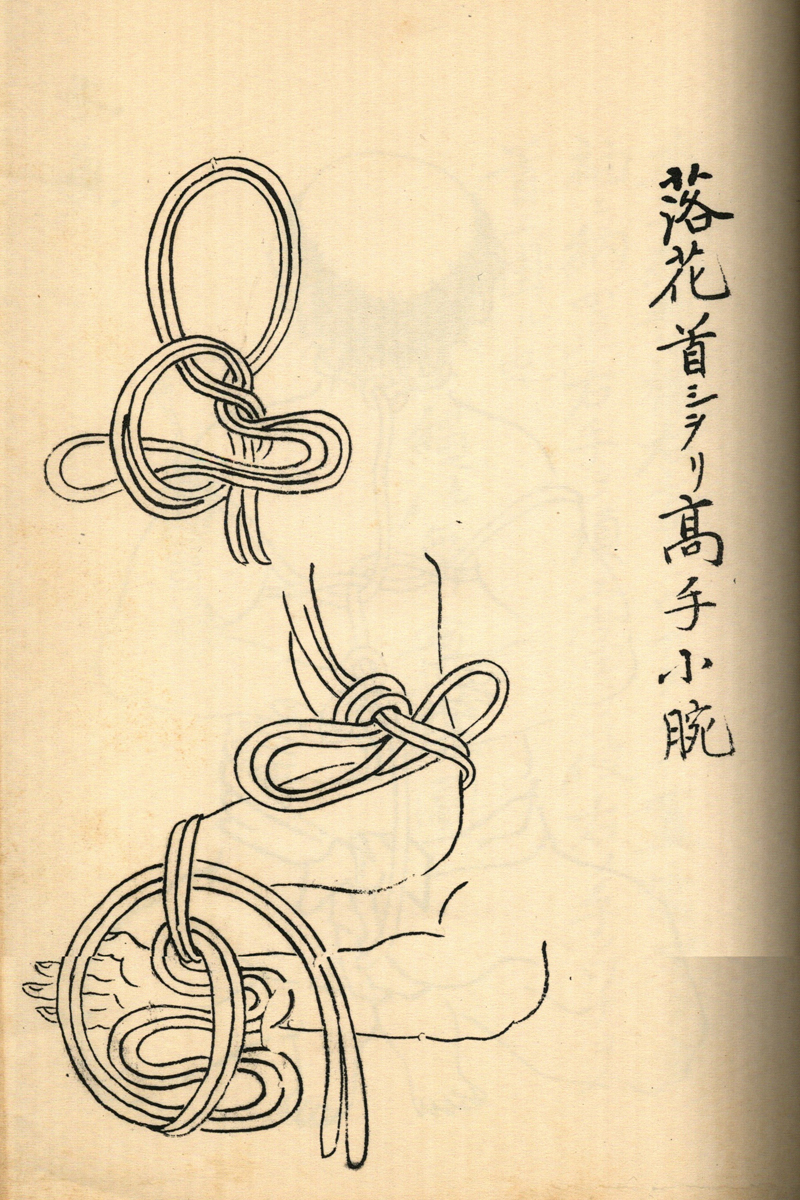 落花首シヲリ高手小腕